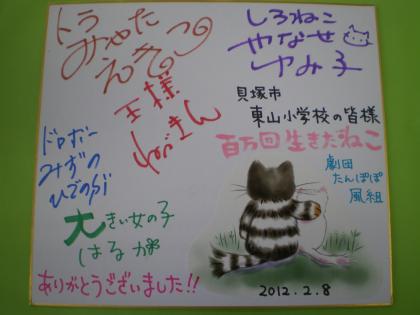 トラ
みやた
えきつ
しろねこ
やなせ
ゆみ子
王様
わがまん
貝塚市
東山小学校の皆様
百万回生きたねこ
ドロボー
みずの
ひでのり
劇団
たんぽぽ
風組
大きい女の子
はるか
ありがとうございました!!
2012.2.8